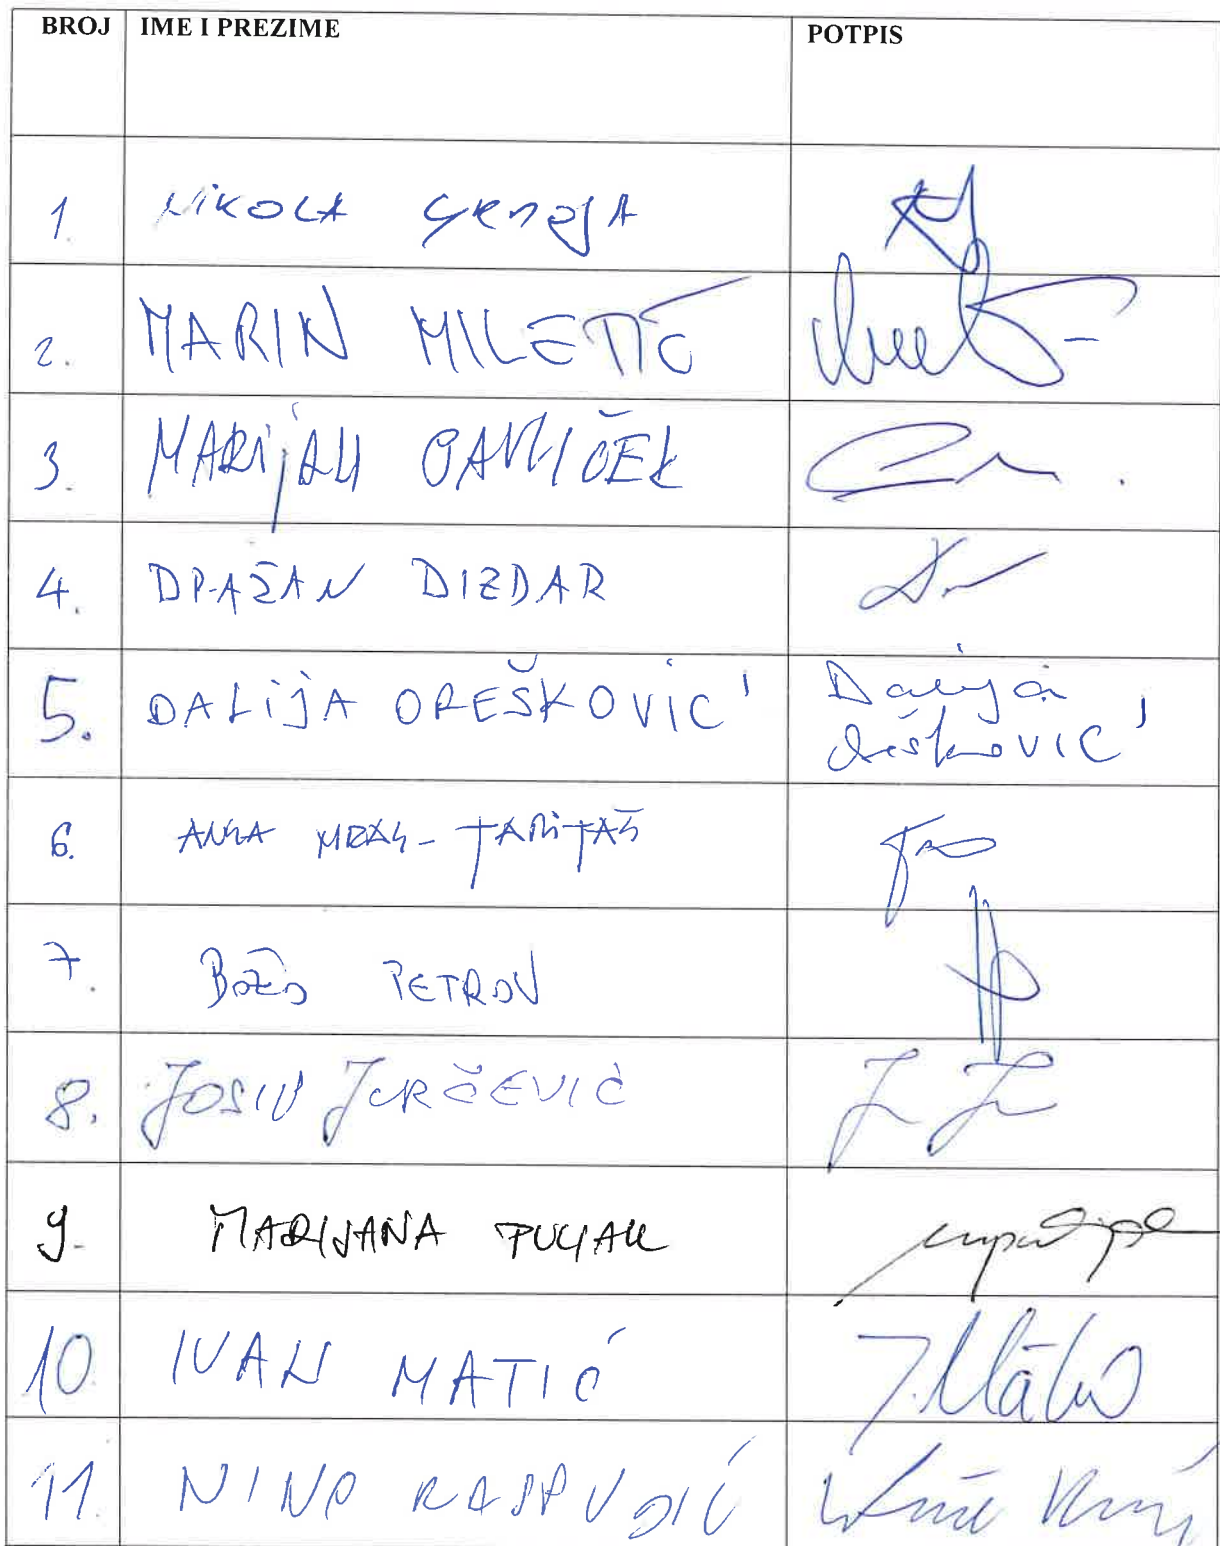 BROJ IME I PREZIME POTPIS
1. NIKOLA GRMOJA
2. MARIN MILETIĆ
3. MARIJAN PAVLIČEK
4. DRAŽAN DIZDAR
5. DALIJA OREŠKOVIĆ Dalija
Orešković
6. ANKA MRAK-TARITAŠ
7. Božo PETROV
8. JOSIP JURČEVIĆ
9. MARIJANA PULJAK
10 IVAN MATIĆ
11. NINO RASPUDIĆ